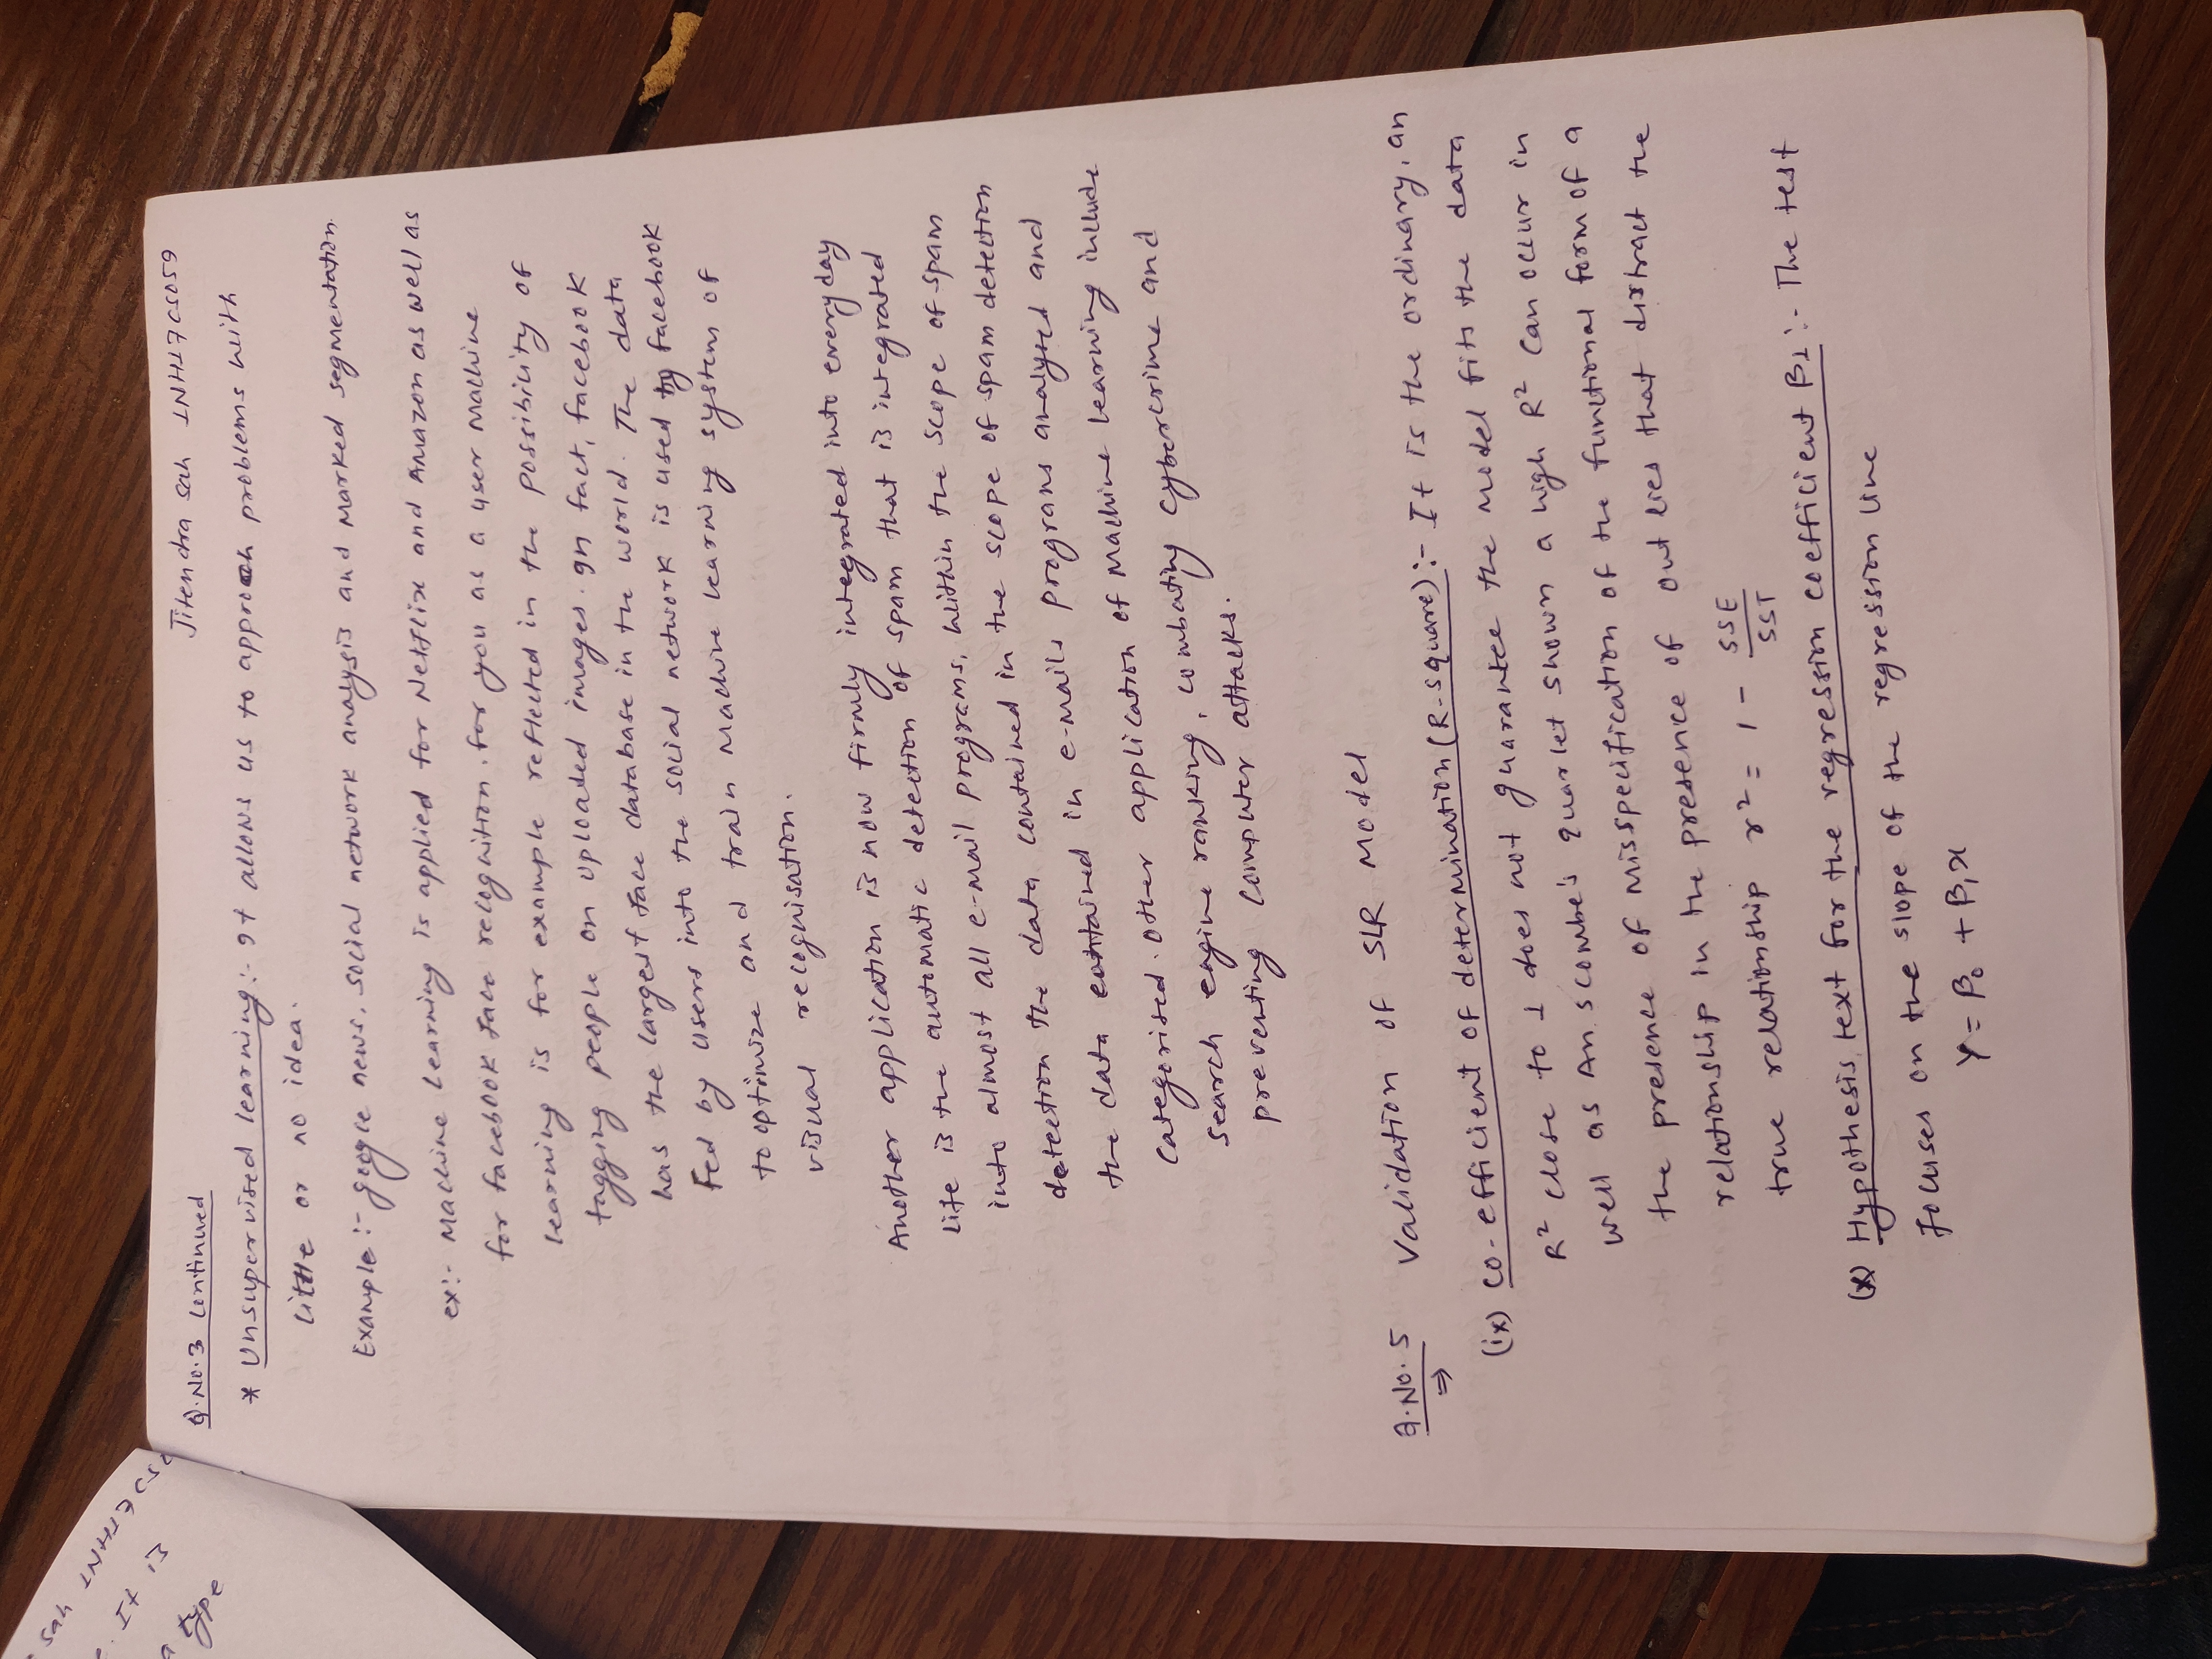 sah 1NH17CS0
It is
a type
Jitendra sah 1NH17CS059
Q.No.3 Continued
* Unsupervised learning:- It allows us to approach problems with
little or no idea.
Example :- google news, social network analysis and Marked segmentation.
ex:- Machine learning is applied for Netflix and Amazon as well as
for facebook face recognition. for you as a user Machine
learning is for example reflected in the possibility of
tagging people on uploaded images. In fact, facebook
has the largest face database in the world. The data
Fed by users into the social network is used by facebook
to optimize and train Machine learning system of
visual recognisation.
Another application is now firmly integrated into everyday
life is the automatic detection of spam that is integrated
into almost all e-mail programs, within the scope of spam
detection the data contained in the scope of spam detection
the data contained in e-mails programs analysed and
categorised. other application of Machine learning include
search engine ranking, combating cybercrime and
preventing computer attacks.
Q.No. 5 Validation of SLR Model
⇒
(ix) co-efficient of determination (R-square):- It is the ordinary, an
R² close to 1 does not guarantee the Model fits the data
well as An.scombe's quarlet shown a high R² can occur in
the presence of misspecification of the functional form of a
relationship in the presence of out lies that distract the
true relationship r² = 1 - SSE/SST
(x) Hypothesis text for the regression coefficient β1 :- The test
focuses on the slope of the regression line
Y = β₀ + β₁x